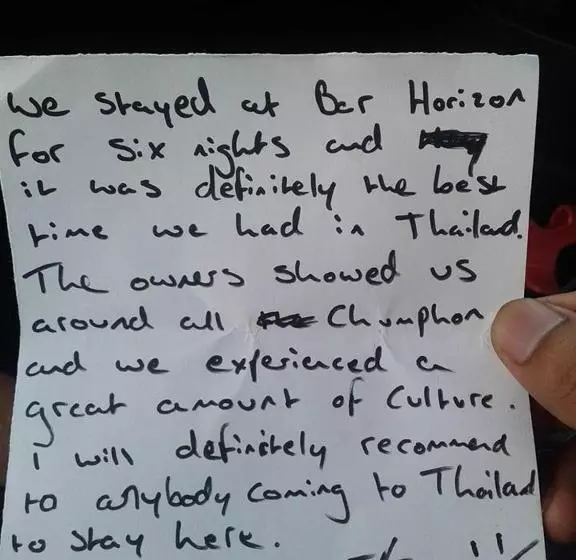 We stayed at Bar Horizon
for six nights and
it was definitely the best
time we had in Thailad.
The owners showed us
around all Chumphon
and we experienced a
great amount of Culture.
I will definitely recommend
to anybody coming to Thailand
to stay here.